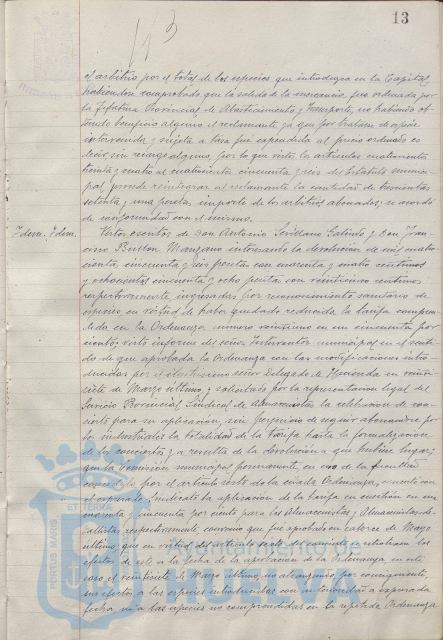 13
113
el arbitrio por el total de las especies que introduzca en la Capital,
habiéndose comprobado que la salida de la mercancía, fue ordenada por
la Jefatura Provincial de Abastecimientos y Transportes, no habiendo ob-
tenido beneficio alguno el reclamante ya que por tratarse de
intervenida y sujeta a tasa fue expendida al precio ordenado es
decir, sin recargo alguno, por lo que vistos los artículos cuatrocientos
treinta y cuatro al cuatrocientos cincuenta y seis del Estatuto munici-
pal, procede reintegrar al reclamante la cantidad de trescientas
setenta y una pesetas, importe de los arbitrios abonados; se acordó
de conformidad con el mismo.
Idem. Idem.
Vistos escritos de Don Antonio Sevillano Galindo y Don Fran-
cisco Manzano interesando la devolución de mil cuatro-
cientas cincuenta y seis pesetas con cuarenta y cuatro céntimos
y ochocientas cincuenta y ocho pesetas con veinticinco céntimos
respectivamente, ingresadas por reconocimiento sanitario de
especies, en virtud de haber quedado reducida la tarifa compren-
dida en la Ordenanza número veintiuno en un cincuenta por
ciento; visto informe del señor Interventor municipal en el senti-
do de que aprobada la Ordenanza con las modificaciones intro-
ducidas por el Ilustrísimo señor Delegado de Hacienda en
siete de Marzo último; y solicitado por la representación legal del
Servicio Provincial Sindical de Almacenistas la celebración de con-
cierto para su aplicación, sin perjuicio de seguir abonándose por
los industriales la totalidad de la tarifa hasta la formalización
de los conciertos y a resulta de la devolución a que hubiere lugar;
que la Comisión municipal permanente, en uso de la facultad
concedida por el artículo sexto de la citada Ordenanza, convino con
el expresado Sindicato la aplicación de la tarifa en cuestión en un
cincuenta por ciento para los Almacenistas y Almacenistas de-
tallistas respectivamente, convenio que fue aprobado en catorce de Mayo
último, que en virtud del artículo sexto del convenio se retrotraen los
efectos de este a la fecha de la aprobación de la Ordenanza, en este
caso el veintisiete de Marzo último, no alcanzando por consiguiente,
sus efectos a las especies introducidas con anterioridad a expresada
fecha, ni a las especies no comprendidas en la repetida Ordenanza
Ayuntamiento de
PORTUS MARIS ET TERRA